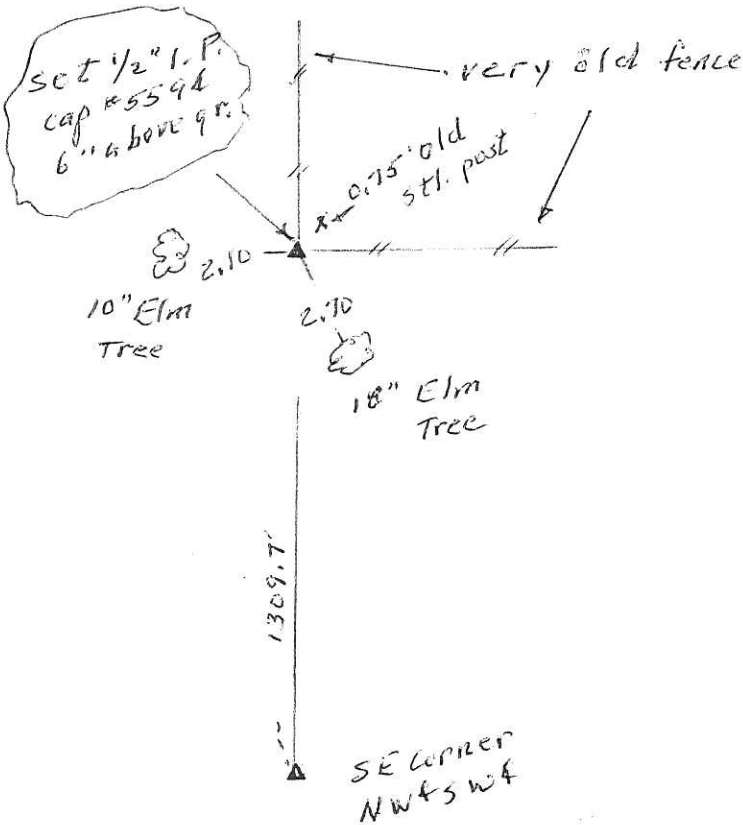 set 1/2" I.P.
cap #5594
6" above gr.
very old fence
0.75' old
stl. post
2.10
10" Elm
Tree
2.70
18" Elm
Tree
1309.7'
SE Corner
NW4SW4